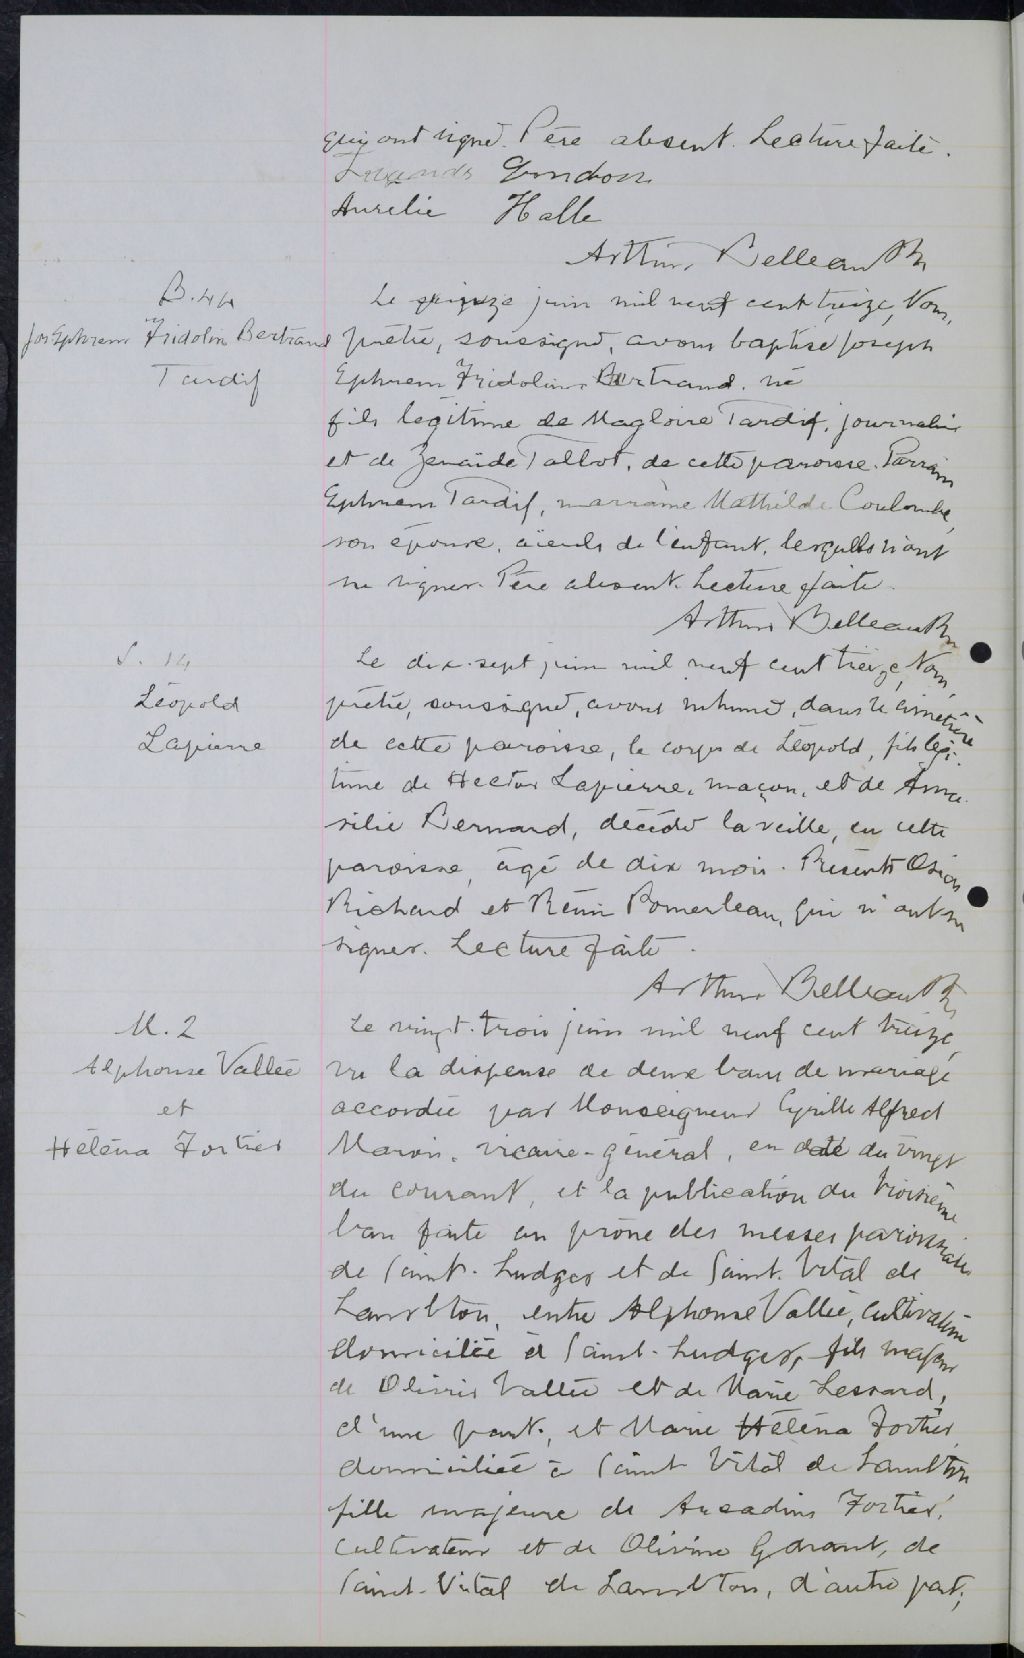 qui ont signé. Père absent. Lecture faite.
Gindon
Aurelie Halle
Arthur Belleau Ptr
B. 44
Jos Ephrem Fridolin Bertrand
Tardif
Le quinze juin mil neuf cent treize, Nous,
prêtre, soussigné, avons baptisé Joseph
Ephrem Fridolin Bertrand, né
fils légitime de Magloire Tardif, journalier
et de Zenaïde Talbot, de cette paroisse. Parrain
Ephrem Tardif, marraine Mathilde Coulombe,
son épouse, aïeuls de l'enfant, lesquels n'ont
su signer. Père absent. Lecture faite.
Arthur Belleau Ptr
S. 14
Léopold
Lapierre
Le dix-sept juin mil neuf cent treize, Nous,
prêtre, soussigné, avons inhumé, dans le cimetière
de cette paroisse, le corps de Léopold, fils légi-
time de Hector Lapierre, maçon, et de Ama-
silie Bernard, décédé la veille, en cette
paroisse, âgé de dix mois. Présents
Richard et Rémi Pomerleau, qui n'ont su
signer. Lecture faite.
Arthur Belleau Ptr
M. 2
Alphonse Vallée
et
Héléna Fortier
Le vingt-trois juin mil neuf cent treize,
vu la dispense de deux bans de mariage
accordée par Monseigneur Cyrille Alfred
Marois, vicaire-général, en date du vingt
du courant, et la publication du troisième
ban faite au prône des messes paroissiales
de Saint-Ludger et de Saint-Vital de
Lambton, entre Alphonse Vallée, cultivateur
domicilié à Saint-Ludger, fils majeur
de Olivier Vallée et de Marie Lessard,
d'une part, et Marie Héléna Fortier,
domiciliée à Saint Vital de Lambton
fille majeure de Arcadius Fortier,
cultivateur et de Olivine Garant, de
Saint-Vital de Lambton, d'autre part;